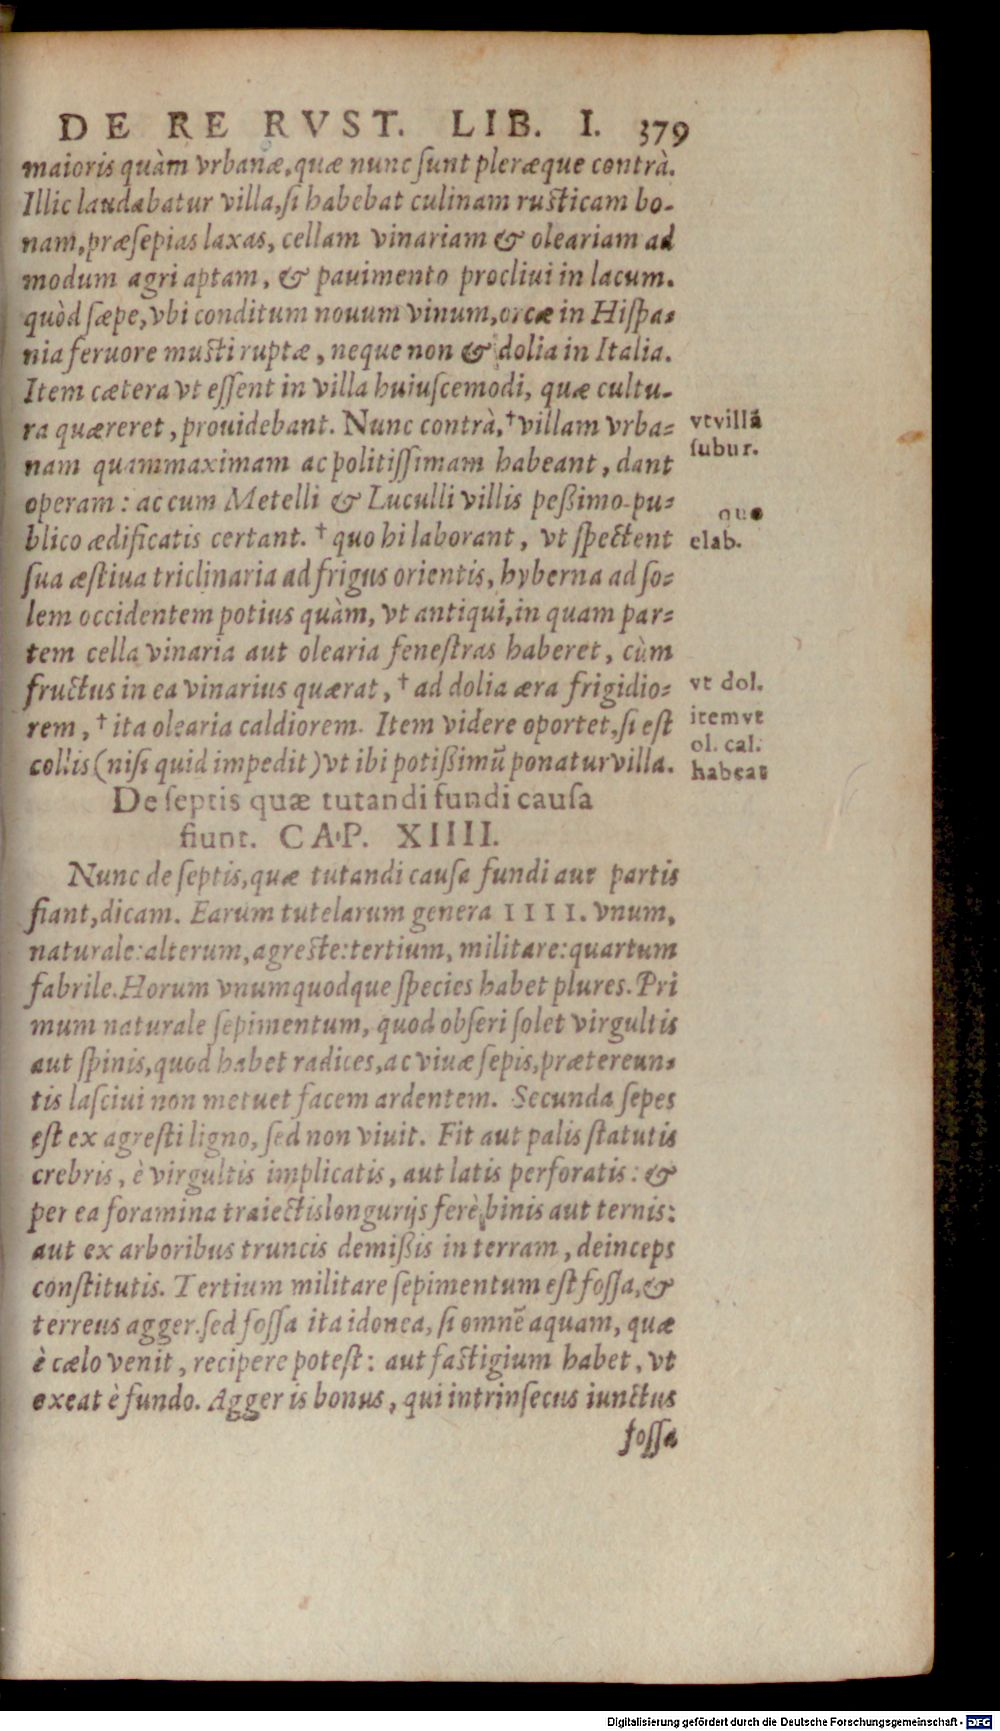 DE RE RVST. LIB. I. 379
maioris quàm vrbanæ, quæ nunc ſunt pleræque contrà.
Illic laudabatur villa, ſi habebat culinam ruſticam bo-
nam, præſepias laxas, cellam vinariam & oleariam ad
modum agri aptam, & pauimento procliui in lacum.
quòd ſæpe, vbi conditum nouum vinum, orcæ in Hiſpa-
nia feruore muſti ruptæ, neque non & dolia in Italia.
Item cætera vt eſſent in villa huiuſcemodi, quæ cultu-
ra quæreret, prouidebant. Nunc contrà, † villam vrba-
nam quammaximam ac politiſſimam habeant, dant
operam: ac cum Metelli & Luculli villis peßimo pu-
blico ædificatis certant. † quo hi laborant, vt ſpectent
ſua æſtiua triclinaria ad frigus orientis, hyberna ad ſo-
lem occidentem potius quàm, vt antiqui, in quam par-
tem cella vinaria aut olearia feneſtras haberet, cùm
fructus in ea vinarius quærat, † ad dolia æra frigidio-
rem, † ita olearia caldiorem. Item videre oportet, ſi eſt
collis (niſi quid impedit) vt ibi potißimũ ponatur villa.
vt villã
ſubur.
quo
elab.
vt dol.
item vt
ol. cal.
habeat
De ſeptis quæ tutandi fundi cauſa
fiunt. CAP. XIIII.
Nunc de ſeptis, quæ tutandi cauſa fundi aut partis
fiant, dicam. Earum tutelarum genera IIII. vnum,
naturale: alterum, agreſte: tertium, militare: quartum
fabrile. Horum vnumquodque ſpecies habet plures. Pri
mum naturale ſepimentum, quod obſeri ſolet virgultis
aut ſpinis, quod habet radices, ac viuæ ſepis, prætereun-
tis laſciui non metuet facem ardentem. Secunda ſepes
eſt ex agreſti ligno, ſed non viuit. Fit aut palis ſtatutis
crebris, è virgultis implicatis, aut latis perforatis: &
per ea foramina traiectis longurijs ferè binis aut ternis:
aut ex arboribus truncis demißis in terram, deinceps
conſtitutis. Tertium militare ſepimentum eſt foſſa, &
terreus agger. ſed foſſa ita idonea, ſi omnẽ aquam, quæ
è cælo venit, recipere poteſt: aut faſtigium habet, vt
exeat è fundo. Agger is bonus, qui intrinſecus iunctus
foſſa
Digitalisierung gefördert durch die Deutsche Forschungsgemeinschaft - DFG